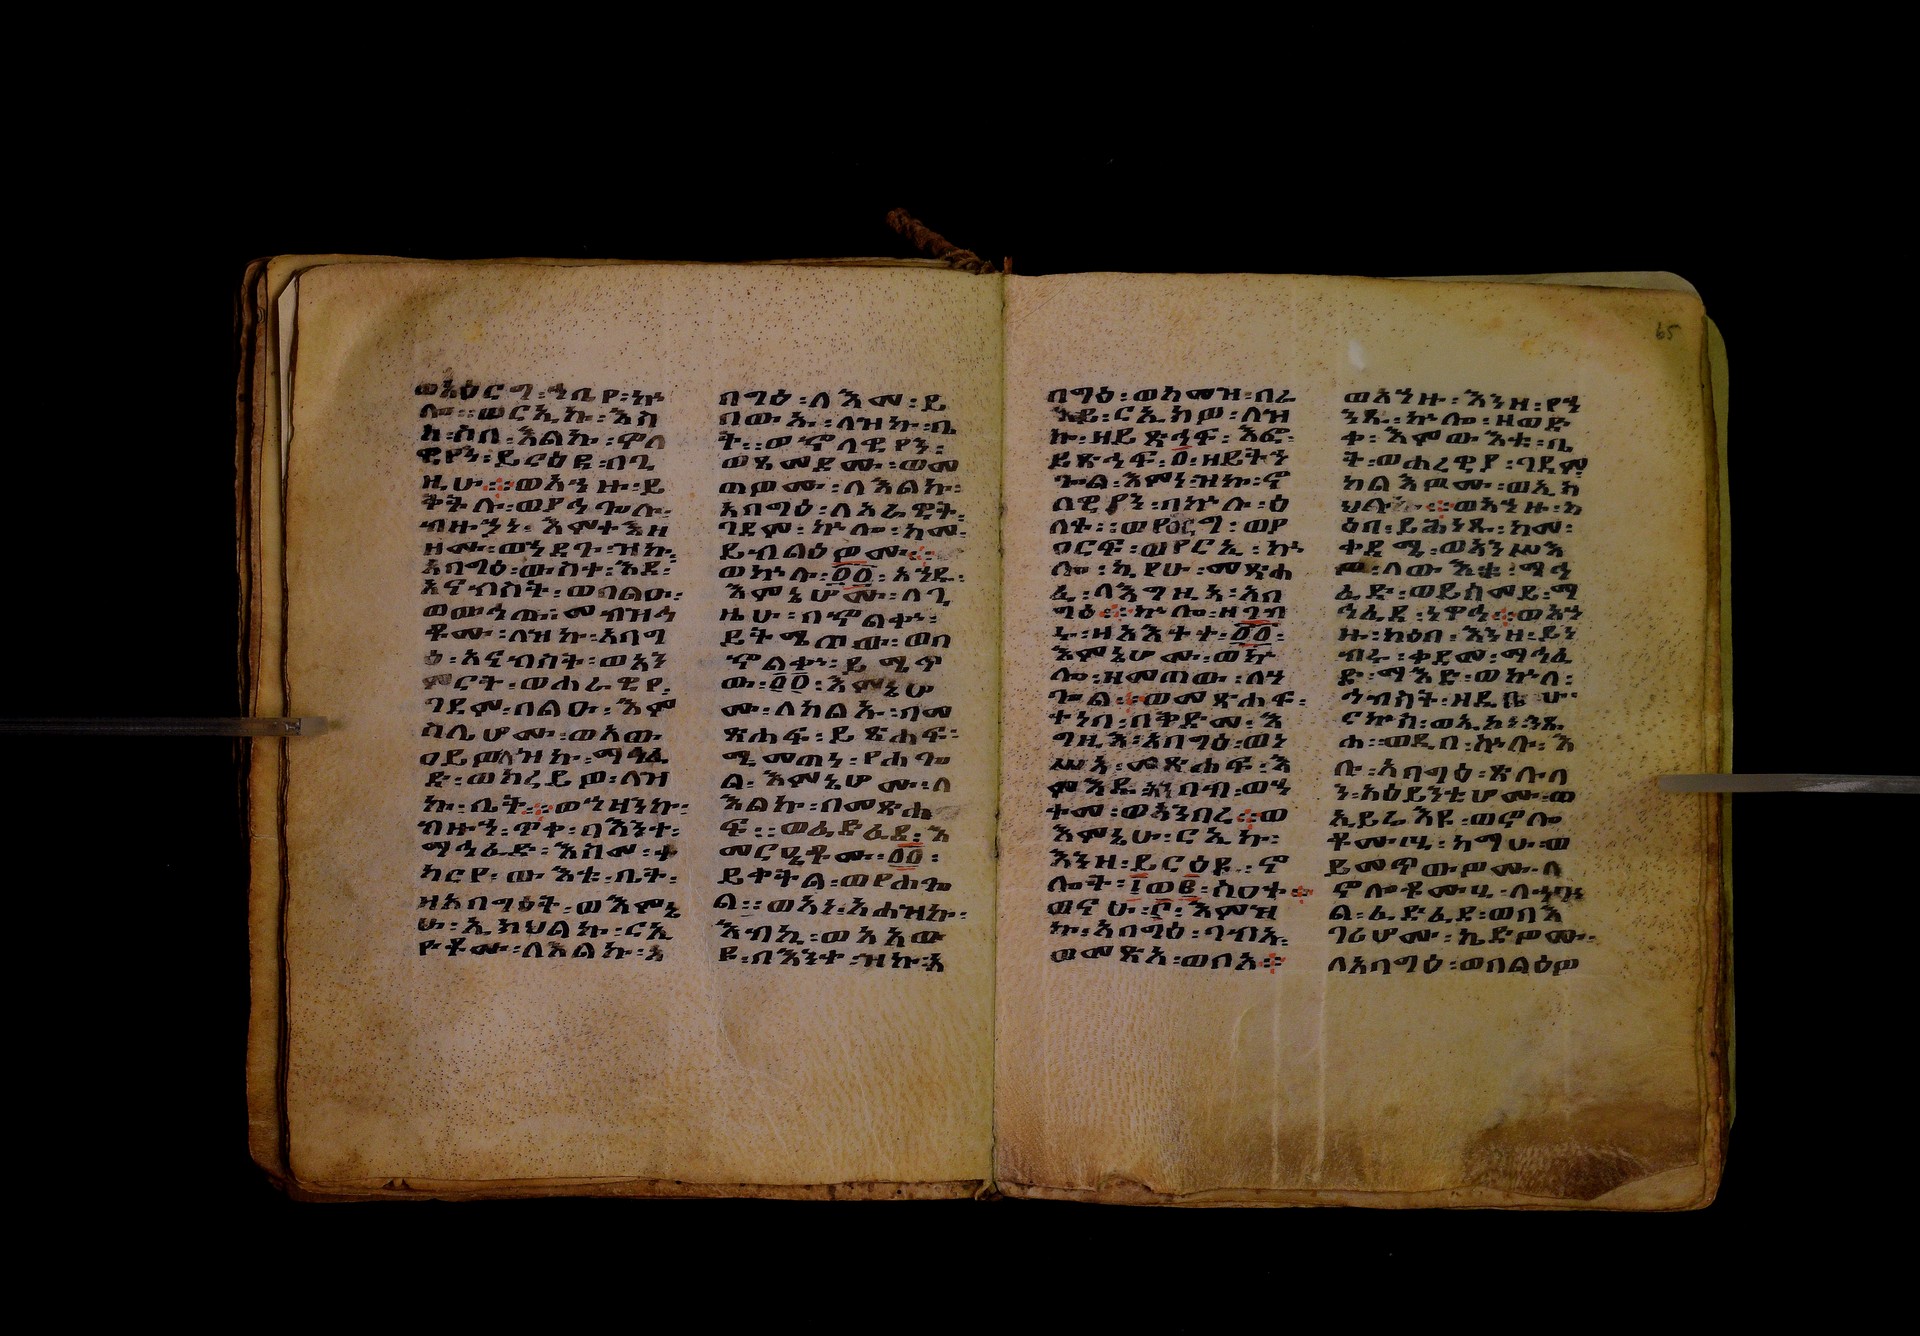 ወእዕርግ፡ኀቤየ፡ኵ
ሎ፡፡ወርኢኩ፡እስ
ከ፡ሶበ፡እልኩ፡ኖላ
ዊየን፡ይርዕዩ፡በጊ
ዜሁ፡፡ወአኀዙ፡ይ
ትትሉ፡ወየኀጐሉ፡
ብዙኀነ፡እምተእዘ
ዞሙ፡ወኀደጉ፡ዝኩ፡
አባግዕ፡ውስተ፡እደ፡
አናብስት፡ወበልዑ፡
ወውኅጡ፡መብዝኅ
ቶሙ፡ለዝኩ፡አባግ
ዕ፡አናብስት፡ወአን
ምርት፡ወሐራዊየ፡
ገደም፡በልዑ፡ምስ
ሌሆሙ፡ወአው
ዐይዎ፡ለዝኩ፡ማኅፈ
ድ፡ወከረይዎ፡ለዝ
ኩ፡ቤት፡፡ወኀዘንኩ፡
ብዙኀ፡ጥቀ፡በእንተ፡
ማኅፈድ፡እስመ፡ተ
ከርየ፡ውእቱ፡ቤት፡
ዘአባግዕት፡ወእምኔ
ሁ፡ኢክህልኩ፡ርኢ
ዮቶሙ፡ለእልኩ፡አ
በግዕ፡ለእመ፡ይ
በውኡ፡ለዝኩ፡ቤ
ት፡፡ወኖላዊየን፡
ወጼመደሙ፡ወመ
ጠዎሙ፡ለእልኩ፡
አባግዕ፡ለአራዊት፡
ገደም፡ኵሎ፡ከመ፡
ይብልዕዎሙ፡፡
ወኵሉ፡፩፩፡አንዱ፡
እምኔሆሙ፡ለጊ
ዜሁ፡በኖልቍ፡
ይትሜጠው፡ወበ
ኖልቍ፡ይሜጥ
ው፡፩፩፡እምኔሆ
ሙ፡ለካልኡ፡በመ
ጽሐፍ፡ይጽሐፍ፡
ሚመጠነ፡የሐጕ
ል፡እምኔሆሙ፡ለ
እልኩ፡በመጽሐ
ፍ፡፡ወፈድፈደ፡እ
ምርዓቶሙ፡፩፩፡
ይቀትል፡ወየሐጕ
ል፡፡ወአነ፡አሐዝኩ፡
እብኪ፡ወአአው
ዩ፡በእንተ፡ዝኩ፡አ
በግዕ፡ወከመዝ፡በራ
እይ፡ርኢክዎ፡ለዝ
ኩ፡ዘይጽኅፍ፡እፎ፡
ይጽኅፍ፡፩፡ዘይትኀ
ጐል፡እምነ፡ዝኩ፡ኖ
ላዊያን፡በኵሉ፡ዕ
ለት፡፡ወየዐርግ፡ወየ
ዐርፍ፡ወያርኢ፡ኵ
ሎ፡ኪያሁ፡መጽሐ
ፈ፡ለእግዚአ፡አባ
ግዕ፡፡ኵሎ፡ዘገብ
ሩ፡ዘአእተተ፡፩፩፡
እምኔሆሙ፡ወኵ
ሎ፡ዘመጠው፡ለሀ
ጐል፡፡ወመጽሐፍ፡
ተነበ፡በቅድመ፡እ
ግዚእ፡አባግዕ፡ወነ
ሥአ፡መጽሐፍ፡እ
ምእዱ፡አንበበ፡ወኀ
ተመ፡ወአንበረ፡፡ወ
እምኔሁ፡ርኢኩ፡
እንዘ፡ይርዕዩ፡ኖ
ሎት፡፲ወ፪፡ሰዐተ፡፡
ወናሁ፡፫፡እምዝ
ኩ፡አባግዕ፡ገብኡ፡
ወመጽአ፡ወቦአ፡፡
ወአኀዙ፡እንዘ፡የሐ
ንጹ፡ኵሎ፡ዘወድ
ቀ፡እምውእቱ፡ቤ
ት፡ወሐራዊያ፡ገደም
ከልእዎሙ፡ወኢክ
ህሉ፡፡ወአኀዙ፡ካ
ዕበ፡ይሕንጹ፡ከመ፡
ቀደሚ፡ወአንሥእ
ዎ፡ለውእቱ፡ማኅ
ፈድ፡ወይሰመይ፡ማ
ኅፈደ፡ነዋኀ፡፡ወአኀ
ዙ፡ከዕበ፡እንዘ፡ያነ
ብሩ፡ቀደመ፡ማኅፈ
ድ፡ማእድ፡ወኵሉ፡
ኅብስት፡ዘዲቤሁ፡
ርኩስ፡ወኢኮነ፡ንጹ
ሐ፡፡ወዲበ፡ኵሉ፡እ
ሉ፡አባግዕ፡ጽሉላ
ን፡አዕይንቲሆሙ፡ወ
ኢይሬእዩ፡ወኖሎ
ቶሙሂ፡ከማሁ፡ወ
ይመጥውዎሙ፡ለ
ኖሎቶሙሂ፡ለኀጕ
ል፡ፈድፈደ፡ወበእ
ገሪሆሙ፡ኬድዎሙ፡
ለአባግዕ፡ወበልዕዎ